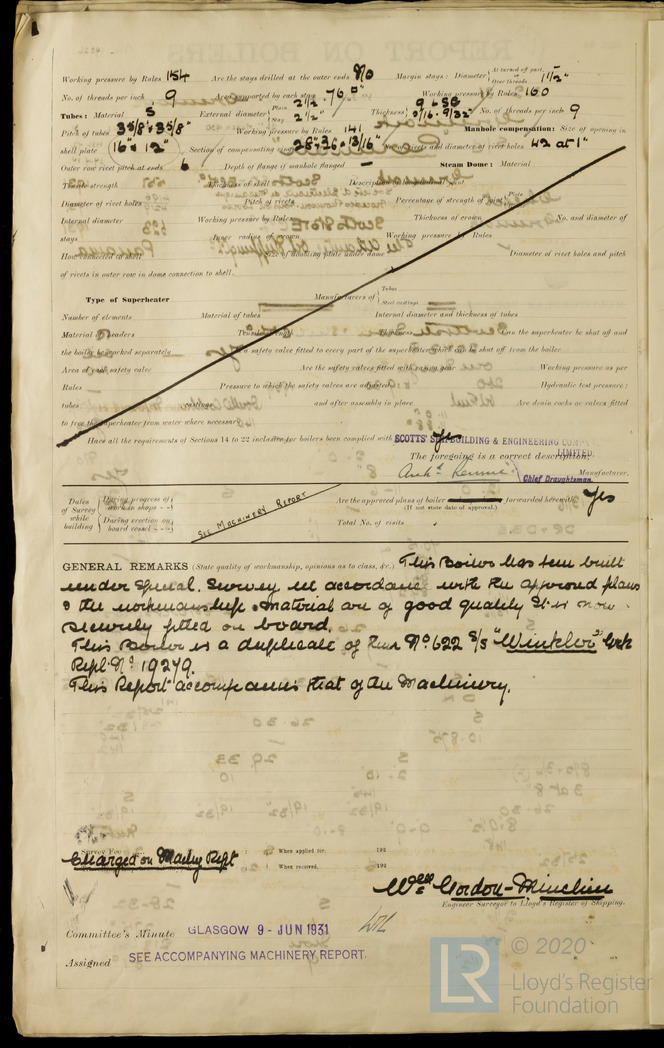 Working pressure by Rules 154 Are the stays drilled at the outer ends No Margin stays: Diameter { At turned off part, Over threads 1 1/2"
No. of threads per inch 9 Area supported by each stay 76.0" Working pressure by Rules 160
Tubes: Material S External diameter { Plain 2 1/2" Stay 2 1/2" Thickness { 9 LSG 5/16 - 9/32" No. of threads per inch 9
Pitch of tubes 3 5/8" x 3 5/8" Working pressure by Rules 141 Manhole compensation: Size of opening in
shell plate 16" x 12" Section of compensating ring No. of rivets and diameter of rivet holes 42 at 1"
Outer row rivet pitch at ends 6 Depth of flange if manhole flanged – Steam Dome: Material
Tensile strength Thickness of shell Description of longitudinal joint
Diameter of rivet holes Pitch of rivets Percentage of strength of joint { Plate
Internal diameter Working pressure by Rules Thickness of crown No. and diameter of
stays Inner radius of crown Working pressure by Rules
How connected to shell Size of doubling plate under dome Diameter of rivet holes and pitch
of rivets in outer row in dome connection to shell.
Type of Superheater Manufacturers of { Tubes Steel castings
Number of elements Material of tubes Internal diameter and thickness of tubes
Material of headers Tensile strength Thickness Can the superheater be shut off and
the boiler be worked separately Is a safety valve fitted to every part of the superheater which can be shut off from the boiler
Area of each safety valve Are the safety valves fitted with easing gear Working pressure as per
Rules Pressure to which the safety valves are adjusted Hydraulic test pressure:
tubes and after assembly in place Are drain cocks or valves fitted
to free the superheater from water where necessary
Have all the requirements of Sections 14 to 22 inclusive for boilers been complied with Yes
SCOTTS' SHIPBUILDING & ENGINEERING COMPANY LIMITED.
The foregoing is a correct description,
Archd. Rennie Manufacturer.
Chief Draughtsman.
Dates of Survey while building { During progress of work in shops - - } { During erection on board vessel - - - } SEE MACHINERY REPORT
Are the approved plans of boiler forwarded herewith Yes
(If not state date of approval.)
Total No. of visits
GENERAL REMARKS (State quality of workmanship, opinions as to class, &c.) This Boiler has been built
under Special Survey in accordance with the approved plans
& the workmanship & material are of good quality It is now
securely fitted on board.
This Boiler is a duplicate of that No 622 S/S "Winkler" Gck
Rept. No 19279.
This Report accompanies that of the Machinery.
Survey Fee When applied for, 192
Charged on Machy Rept When received, 192
Wm Gordon-Minchin
Engineer Surveyor to Lloyd's Register of Shipping.
Committee's Minute GLASGOW 9 - JUN 1931
Assigned SEE ACCOMPANYING MACHINERY REPORT.
LR © 2020
Lloyd's Register
Foundation